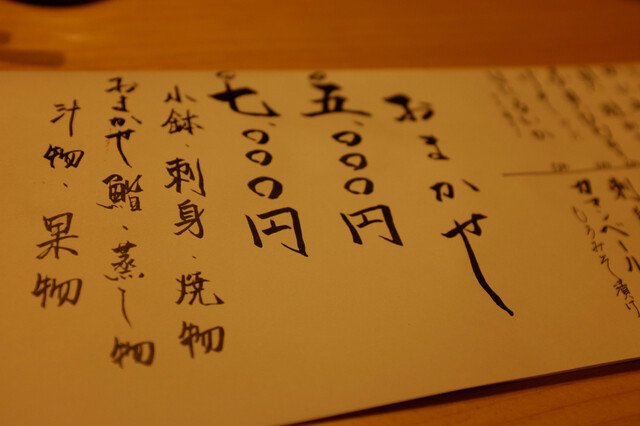 カマンベール
しろみそ漬け
おまかせ
五、〇〇〇円
七、〇〇〇円
小鉢、刺身、焼物
おまかせ鮨、蒸し物
汁物、果物